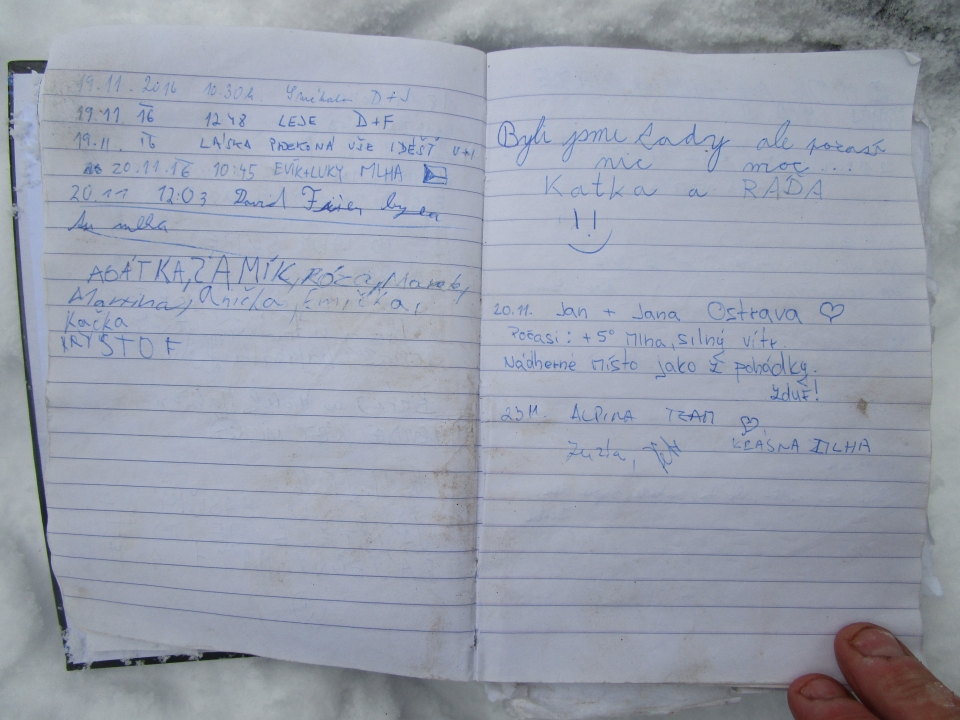 19.11. 2016 10.30h. D+J
19.11 16 12 48 LEJE D+F
19.11. 16 LÁSKA PŘEKONÁ VŠE I DÉŠŤ V+I
20.11.16 10:45 EVÍK+LUKY MLHA
20.11 12:03 David
mlha
AGÁTKA, ZAMÍK, Róza, Marek,
Martina, Anička, Emička,
Kačka
KRYŠTOF
Byli jsme tady ale počasí
nic moc...
Katka a RÁĎA
!!
20.11. Jan + Jana Ostrava ♡
Počasí: +5° Mlha, silný vítr.
Nádherné místo jako z pohádky.
Zduř!
23 11. ALPINA TEAM ♡
Zuzka, KRÁSNÁ MLHA